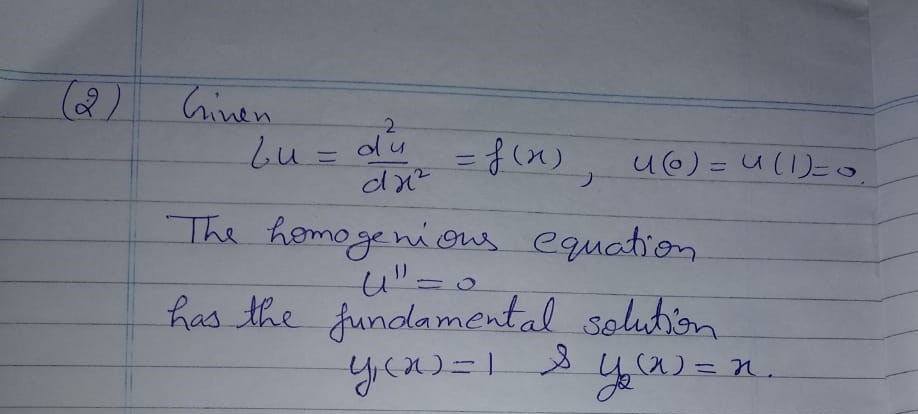 (2) Given
Lu = d²u/dx² = f(x), u(0) = u(1) = 0.
The homogenious equation
u'' = 0
has the fundamental solution
y₁(x) = 1 & y₂(x) = x.